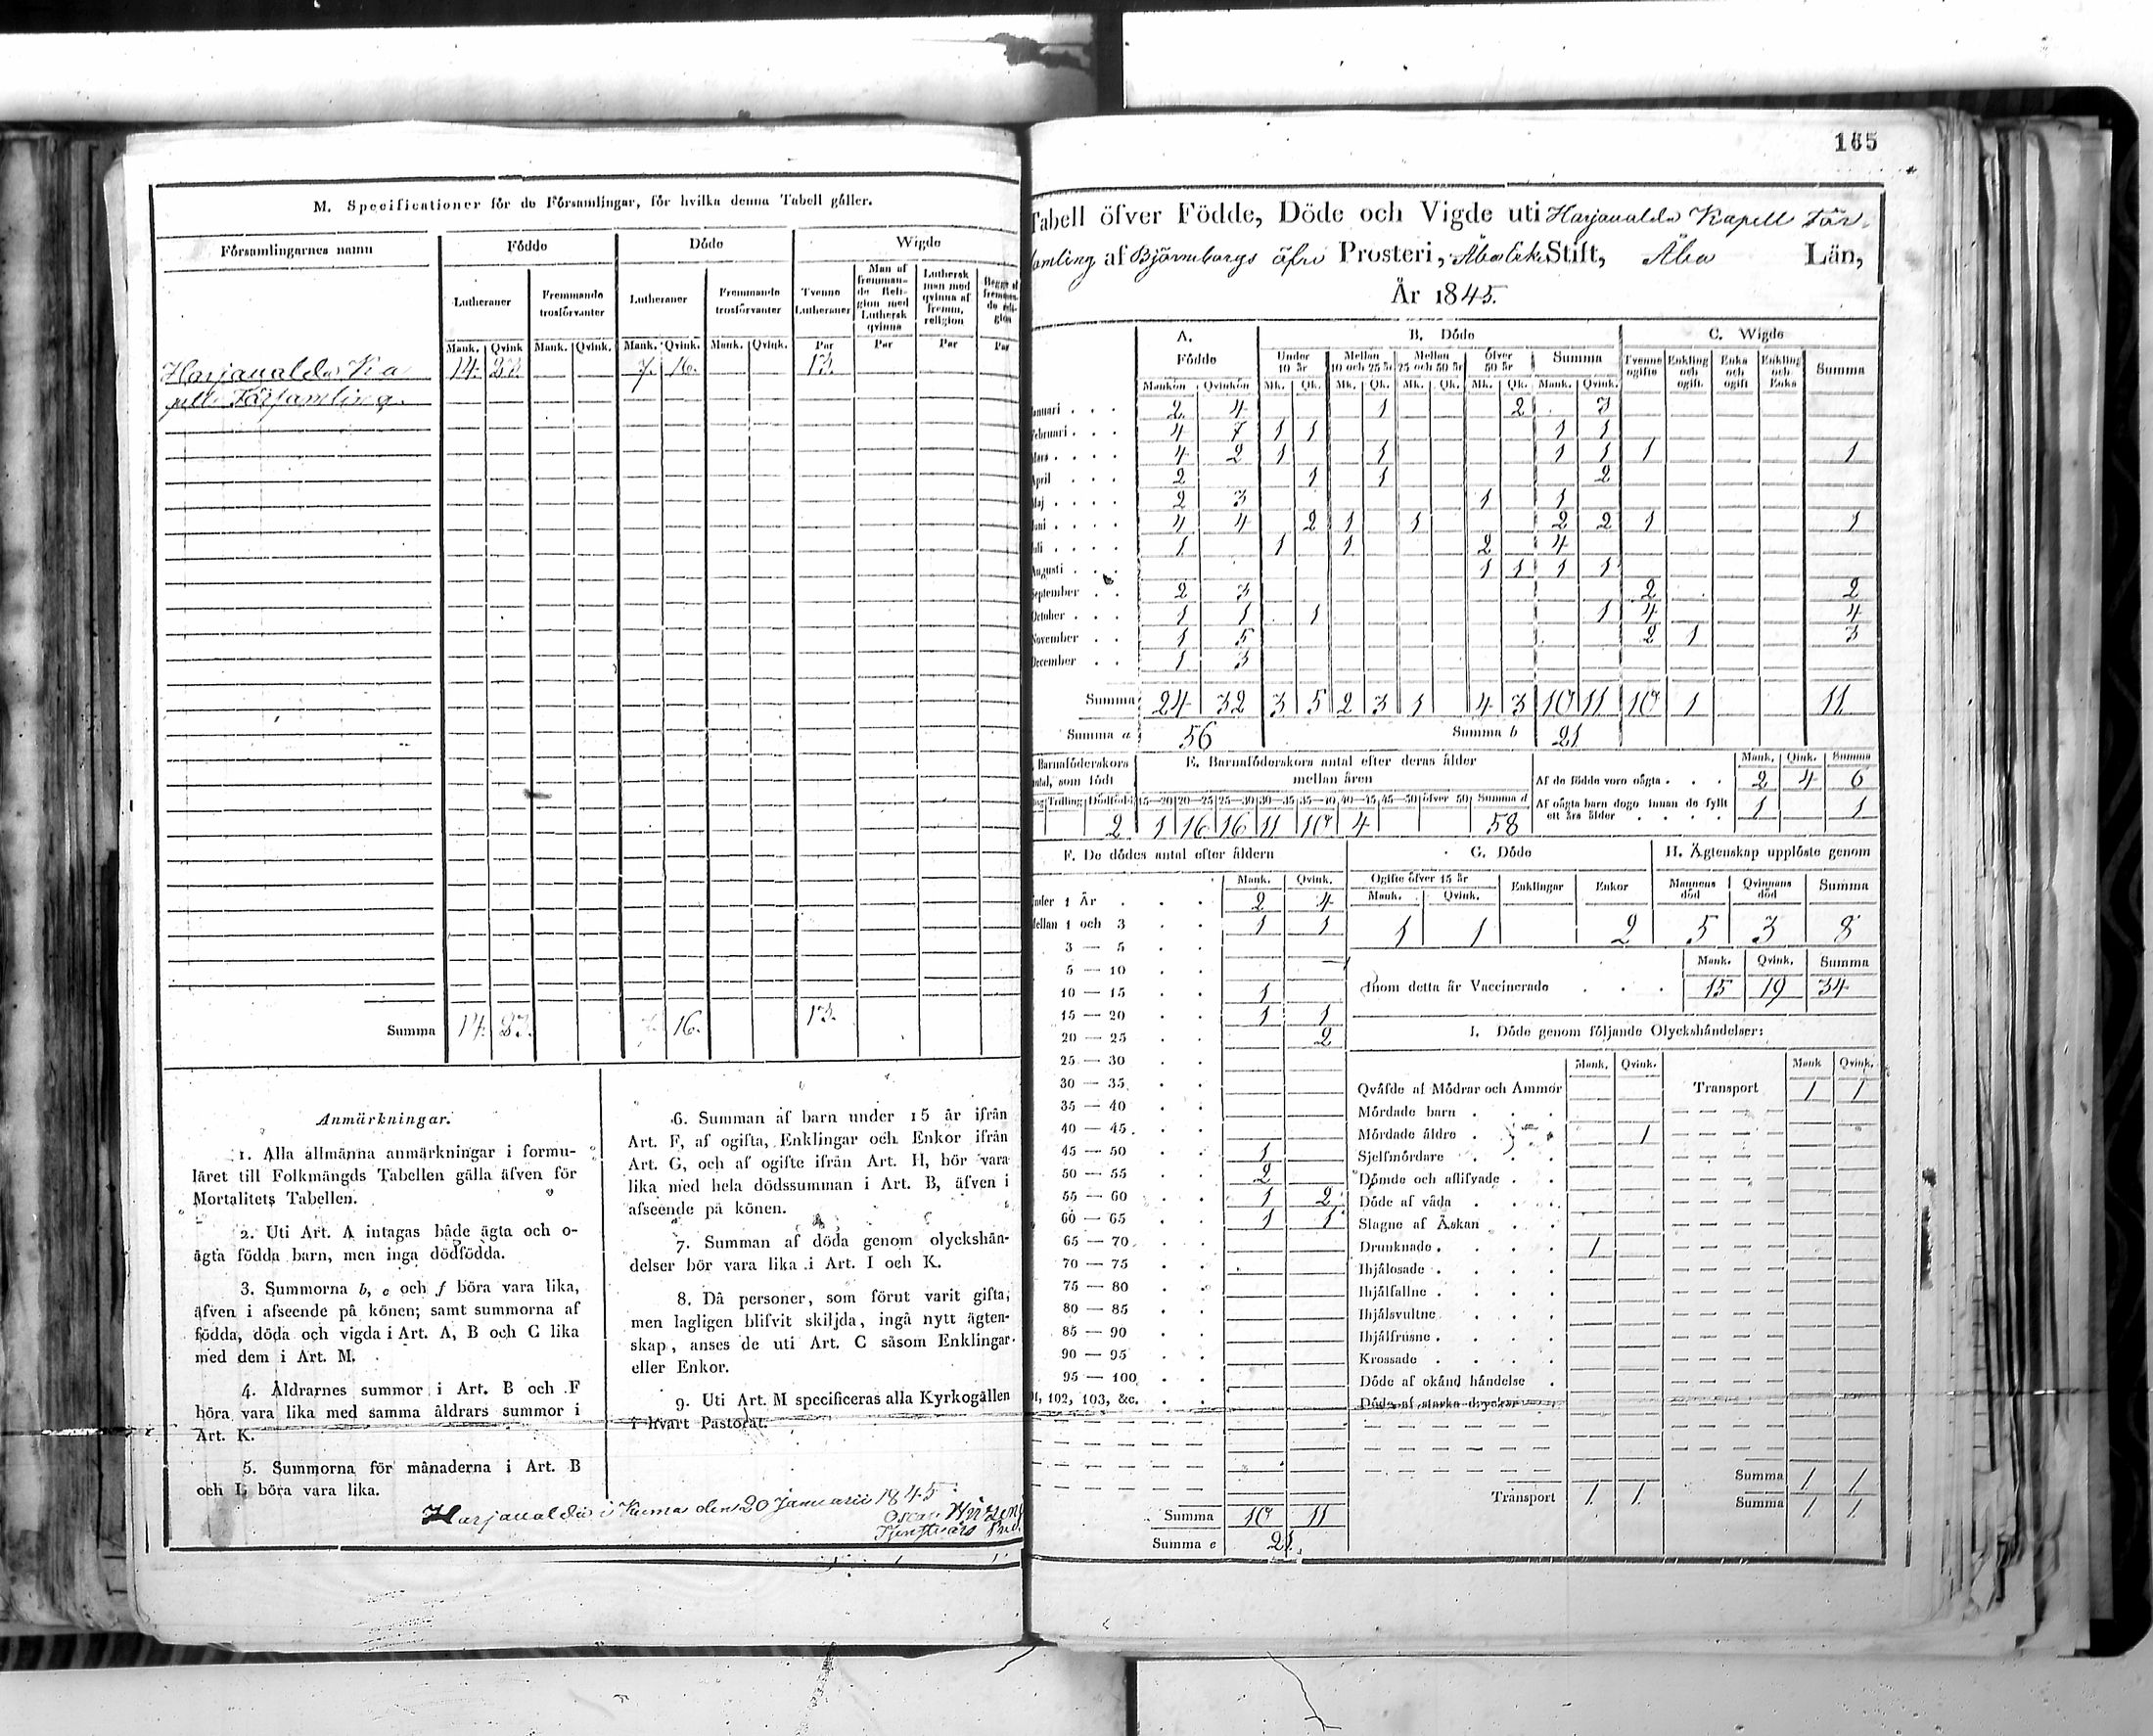 M. Specificationer för de Församlingar, för hvilka denna Tabell gäller.
Församlingarnes namn
Födde
Döde
Wigde
Lutheraner
Fremmande trosförvanter
Lutheraner
Fremmande trosförvanter
Tvenne Lutheraner
Man af fremmande Religion med Luthersk qvinna
Luthersk man med qvinna af fremm. religion
Mank. Qvink Mank. Qvink. Mank. Qvink. Mank. Qvink. Par Par Par Par
Harjavalda Ka 14 23 7. 16. 13.
pell Församling.
Summa 14. 23. 16. 13.
Anmärkningar.
1. Alla allmänna anmärkningar i formu-
läret till Folkmängds Tabellen gälla äfven för
Mortalitets Tabellen.
2. Uti Art. A intagas både ägta och o-
ägta födda barn, men inga dödfödda.
3. Summorna b, e och f böra vara lika,
äfven i afseende på könen; samt summorna af
födda, döda och vigda i Art. A, B och C lika
med dem i Art. M.
4. Åldrarnes summor i Art. B och F
böra vara lika med samma åldrars summor i
Art. K.
5. Summorna för månaderna i Art. B
och L böra vara lika.
6. Summan af barn under 15 år ifrån
Art. F, af ogifta, Enklingar och Enkor ifrån
Art. G, och af ogifte ifrån Art. H, bör vara
lika med hela dödssumman i Art. B, äfven i
afseende på könen.
7. Summan af döda genom olyckshän-
delser bör vara lika i Art. I och K.
8. Då personer, som förut varit gifta,
men lagligen blifvit skiljda, ingå nytt ägten-
skap, anses de uti Art. C såsom Enklingar
eller Enkor.
9. Uti Art. M specificeras alla Kyrkogällen
i hvart Pastorat.
Harjavalda i Kumo den 20 Januarii 1845.
Oscar
165
Tabell öfver Födde, Döde och Vigde uti Harjavalda Kapell För-
samling af Björneborgs öfre Prosteri, Åbo Erke Stift, Åbo Län,
År 1845.
A. Födde
B. Döde
C. Wigde
Under 10 år
Mellan 10 och 25 år
Mellan 25 och 50 år
Öfver 50 år
Summa
Tvenne ogifte
Enkling och ogift
Enka och ogift
Enkling och Enka
Summa
Mankön Qvinkön Mk. Qk. Mk. Qk. Mk. Qk. Mk. Qk. Mank. Qvink.
Januari 2 4 1 2 3
Februari 4 7 1 1 1 1
Mars 4 2 1 1 1 1 1 1
April 2 1 1 2
Maj 2 3 1 1
Juni 4 4 2 1 1 2 2 1 1
Juli 1 1 1 2 4
Augusti 1 1 1 1
September 2 3 2 2
October 1 1 1 1 4 4
November 1 5 2 1 3
December 1 3
Summa 24 32 3 5 2 3 1 4 3 10 11 10 1 11
Summa a 56 Summa b 21
Barnaföderskors antal, som födt
E. Barnaföderskors antal efter deras ålder mellan åren
Trilling Dödfödt 15—20 20—25 25—30 30—35 35—40 40—45 45—50 öfver 50 Summa d
2 1 16 16 11 10 4 58
Mank. Qink. Summa
Af de födde voro oägta 2 4 6
Af oägta barn dogo innan de fyllt ett års ålder 1 1
F. De dödes antal efter åldern
Mank. Qvink.
Under 1 År 2 4
Mellan 1 och 3 1 1
3 — 5
5 — 10
10 — 15 1
15 — 20 1 1
20 — 25 2
25 — 30
30 — 35
35 — 40
40 — 45
45 — 50 1
50 — 55 2
55 — 60 1 2
60 — 65 1 1
65 — 70
70 — 75
75 — 80
80 — 85
85 — 90
90 — 95
95 — 100
102, 103, &c.
Summa 10 11
Summa e 21.
G. Döde
Ogifte öfver 15 år Enklingar Enkor
Mank. Qvink.
1 1 2
H. Ägtenskap upplöste genom
Mannens död Qvinnans död Summa
5 3 8
Mank. Qvink. Summa
Inom detta år Vaccinerade 15 19 34
I. Döde genom följande Olyckshändelser:
Mank. Qvink. Mank Qvink.
Qväfde af Mödrar och Ammor Transport 1 1
Mördade barn
Mördade äldre 1
Sjelfmördare
Dömde och aflifvade
Döde af våda
Slagne af Åskan
Drunknade 1
Ihjälosade
Ihjälfallne
Ihjälsvultne
Ihjälfrusne
Krossade
Döde af okänd händelse
Döde af starka drycker
Summa 1 1
Transport 1. 1. Summa 1. 1.